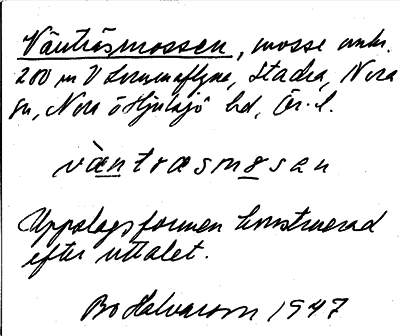 Väntåsmossen, mosse omkr.
200 m V Lommaflyne, Stadra, Nora
sn, Nora o Hjulsjö bd, Ör. l.
väntvasmosan
Uppslagsformen konstruerad
efter uttalet.
Bo Halvarson 1947